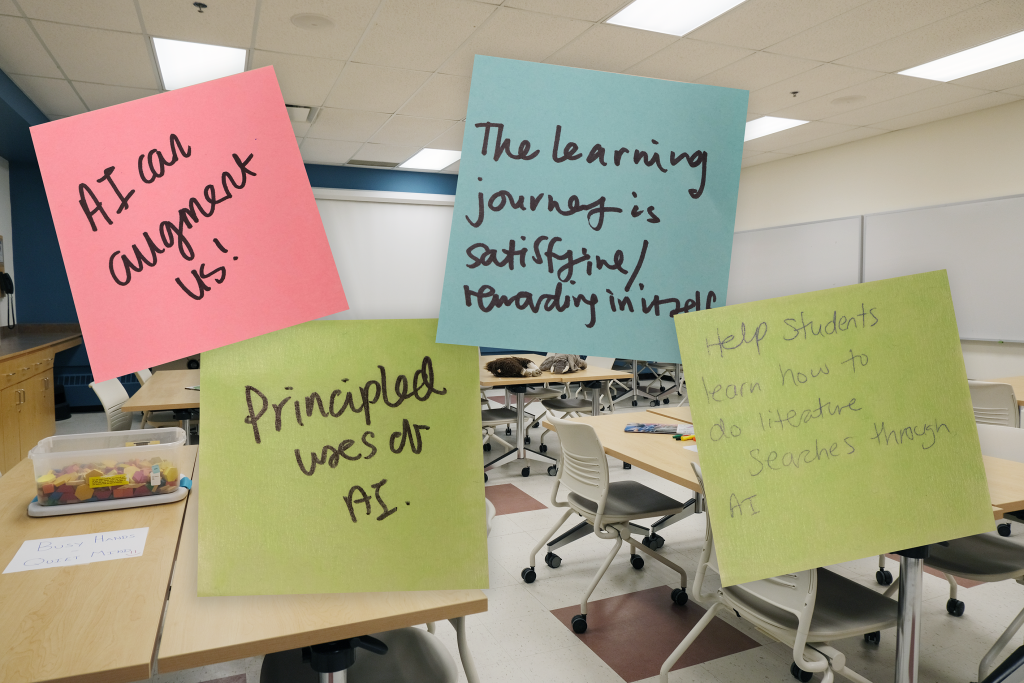 AI can
augment
us!
The learning
journey is
satisfying/
rewarding in itself
Principled
uses of
AI.
Help Students
learn how to
do literature
Searches through
AI
Busy Hands
Quiet Minds